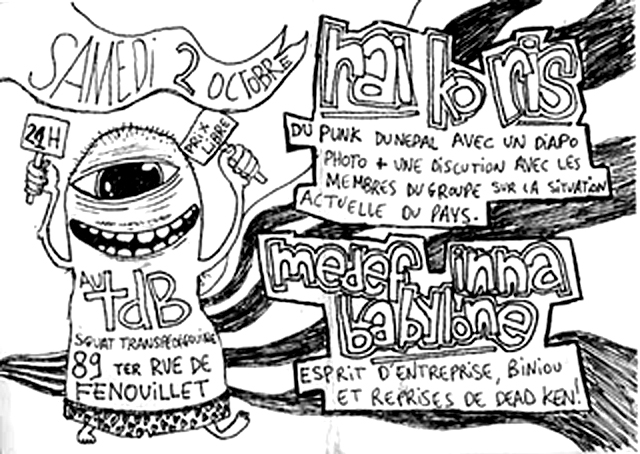 SAMEDI 2 OCTOBRE
21H
PRIX
LIBRE
AU
TDB
SQUAT TRANSPÉDÉGOUINE
89 TER RUE DE
FENOUILLET
hai ko ris
DU PUNK DU NEPAL AVEC UN DIAPO
PHOTO + UNE DISCUTION AVEC LES
MEMBRES DU GROUPE SUR LA SITUATION
ACTUELLE DU PAYS.
medef inna
babylone
ESPRIT D'ENTREPRISE, BINIOU
ET REPRISES DE DEAD KEN!